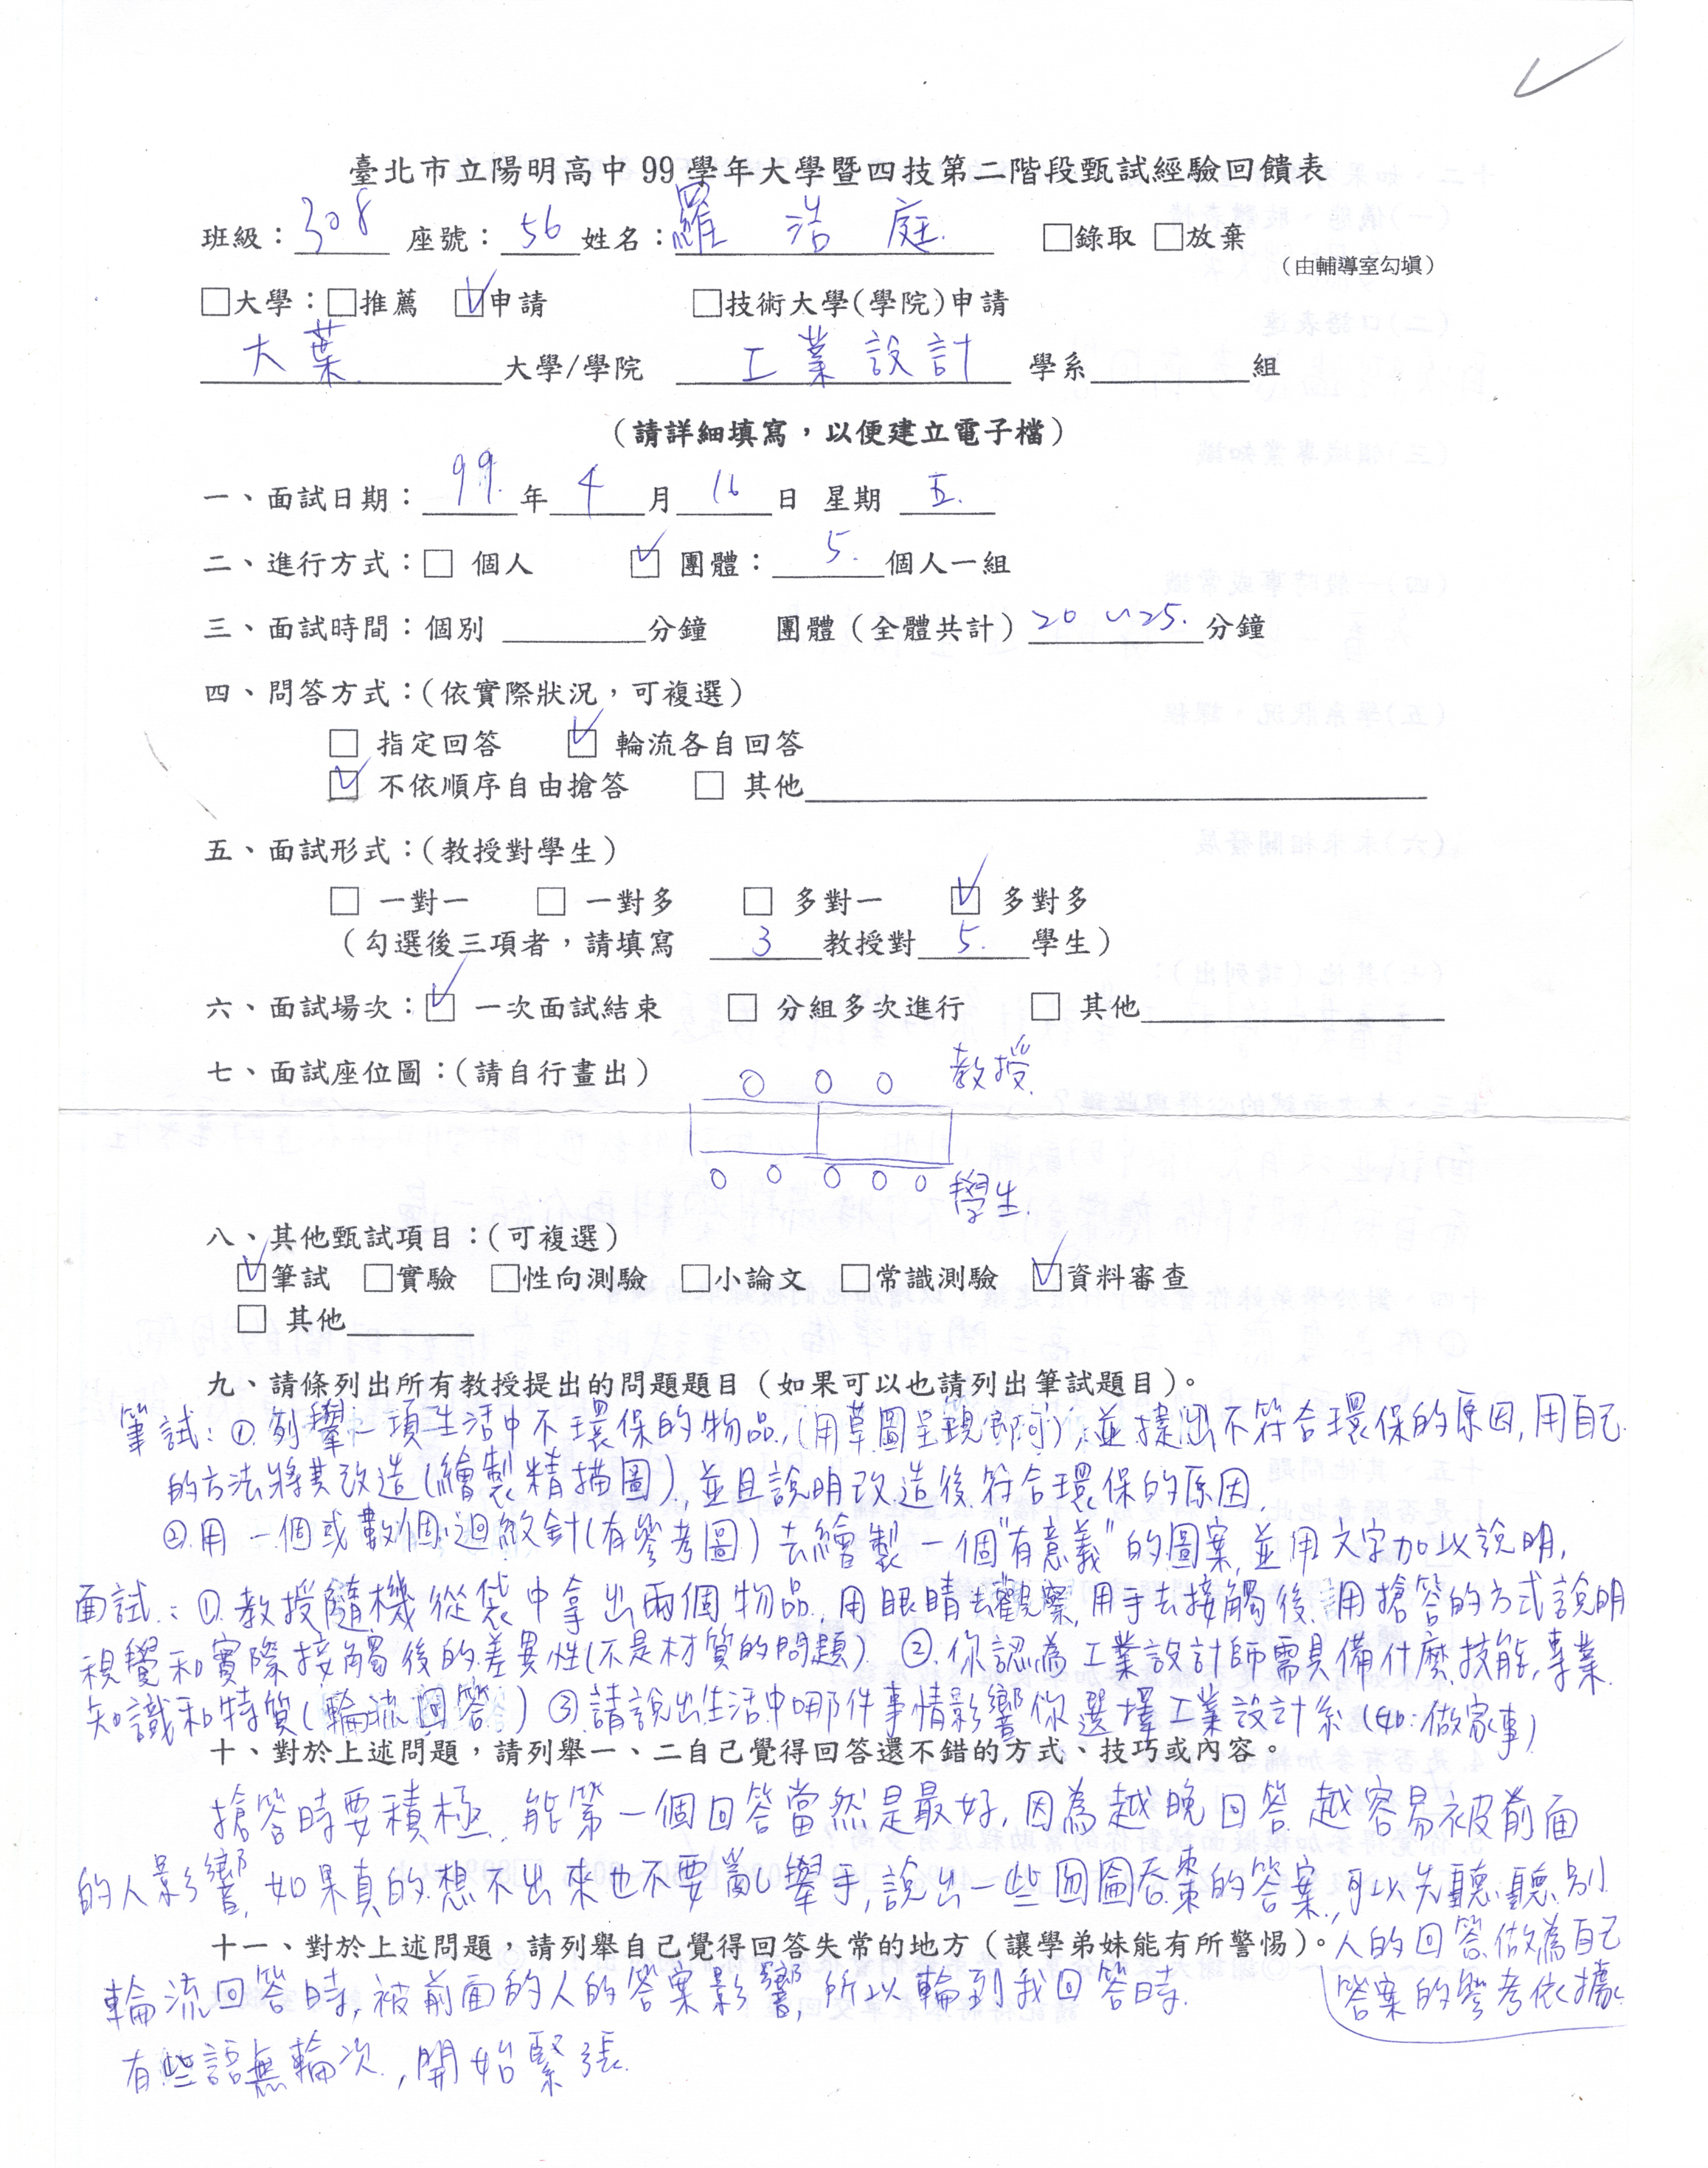 臺北市立陽明高中 99 學年大學暨四技第二階段甄試經驗回饋表
班級：308 座號：56 姓名：羅浩庭 □錄取 □放棄
（由輔導室勾填）
□大學：□推薦 ☑申請 □技術大學(學院)申請
大葉 大學/學院 工業設計 學系 組
（請詳細填寫，以便建立電子檔）
一、面試日期：99 年 4 月 16 日 星期 五
二、進行方式：□ 個人 ☑ 團體：5 個人一組
三、面試時間：個別 分鐘 團體（全體共計）20~25 分鐘
四、問答方式：(依實際狀況，可複選)
□ 指定回答 ☑ 輪流各自回答
☑ 不依順序自由搶答 □ 其他
五、面試形式：(教授對學生)
□ 一對一 □ 一對多 □ 多對一 ☑ 多對多
（勾選後三項者，請填寫 3 教授對 5 學生）
六、面試場次：☑ 一次面試結束 □ 分組多次進行 □ 其他
七、面試座位圖：(請自行畫出) 教授
學生
八、其他甄試項目：(可複選)
☑筆試 □實驗 □性向測驗 □小論文 □常識測驗 ☑資料審查
□ 其他
九、請條列出所有教授提出的問題題目（如果可以也請列出筆試題目）。
筆試：①列舉一項生活中不環保的物品,(用草圖呈現即可),並提出不符合環保的原因,用自己
的方法將其改造(繪製精描圖),並且說明改造後符合環保的原因.
②用一個或數個迴紋針(有參考圖)去繪製一個"有意義"的圖案,並用文字加以說明,
面試：①教授隨機從袋中拿出兩個物品,用眼睛去觀察,用手去接觸後,用搶答的方式說明
視覺和實際接觸後的差異性(不是材質的問題) ②你認為工業設計師需具備什麼技能,專業
知識和特質(輪流回答) ③請說出生活中哪件事情影響你選擇工業設計系(如:做家事)
十、對於上述問題，請列舉一、二自己覺得回答還不錯的方式、技巧或內容。
搶答時要積極,能第一個回答當然是最好,因為越晚回答越容易被前面
的人影響,如果真的想不出來也不要亂舉手,說出一些囫圇吞棗的答案,可以先聽聽別
人的回答做為自己
答案的參考依據
十一、對於上述問題，請列舉自己覺得回答失常的地方（讓學弟妹能有所警惕）。
輪流回答時,被前面的人的答案影響,所以輪到我回答時.
有些語無輪次,開始緊張.